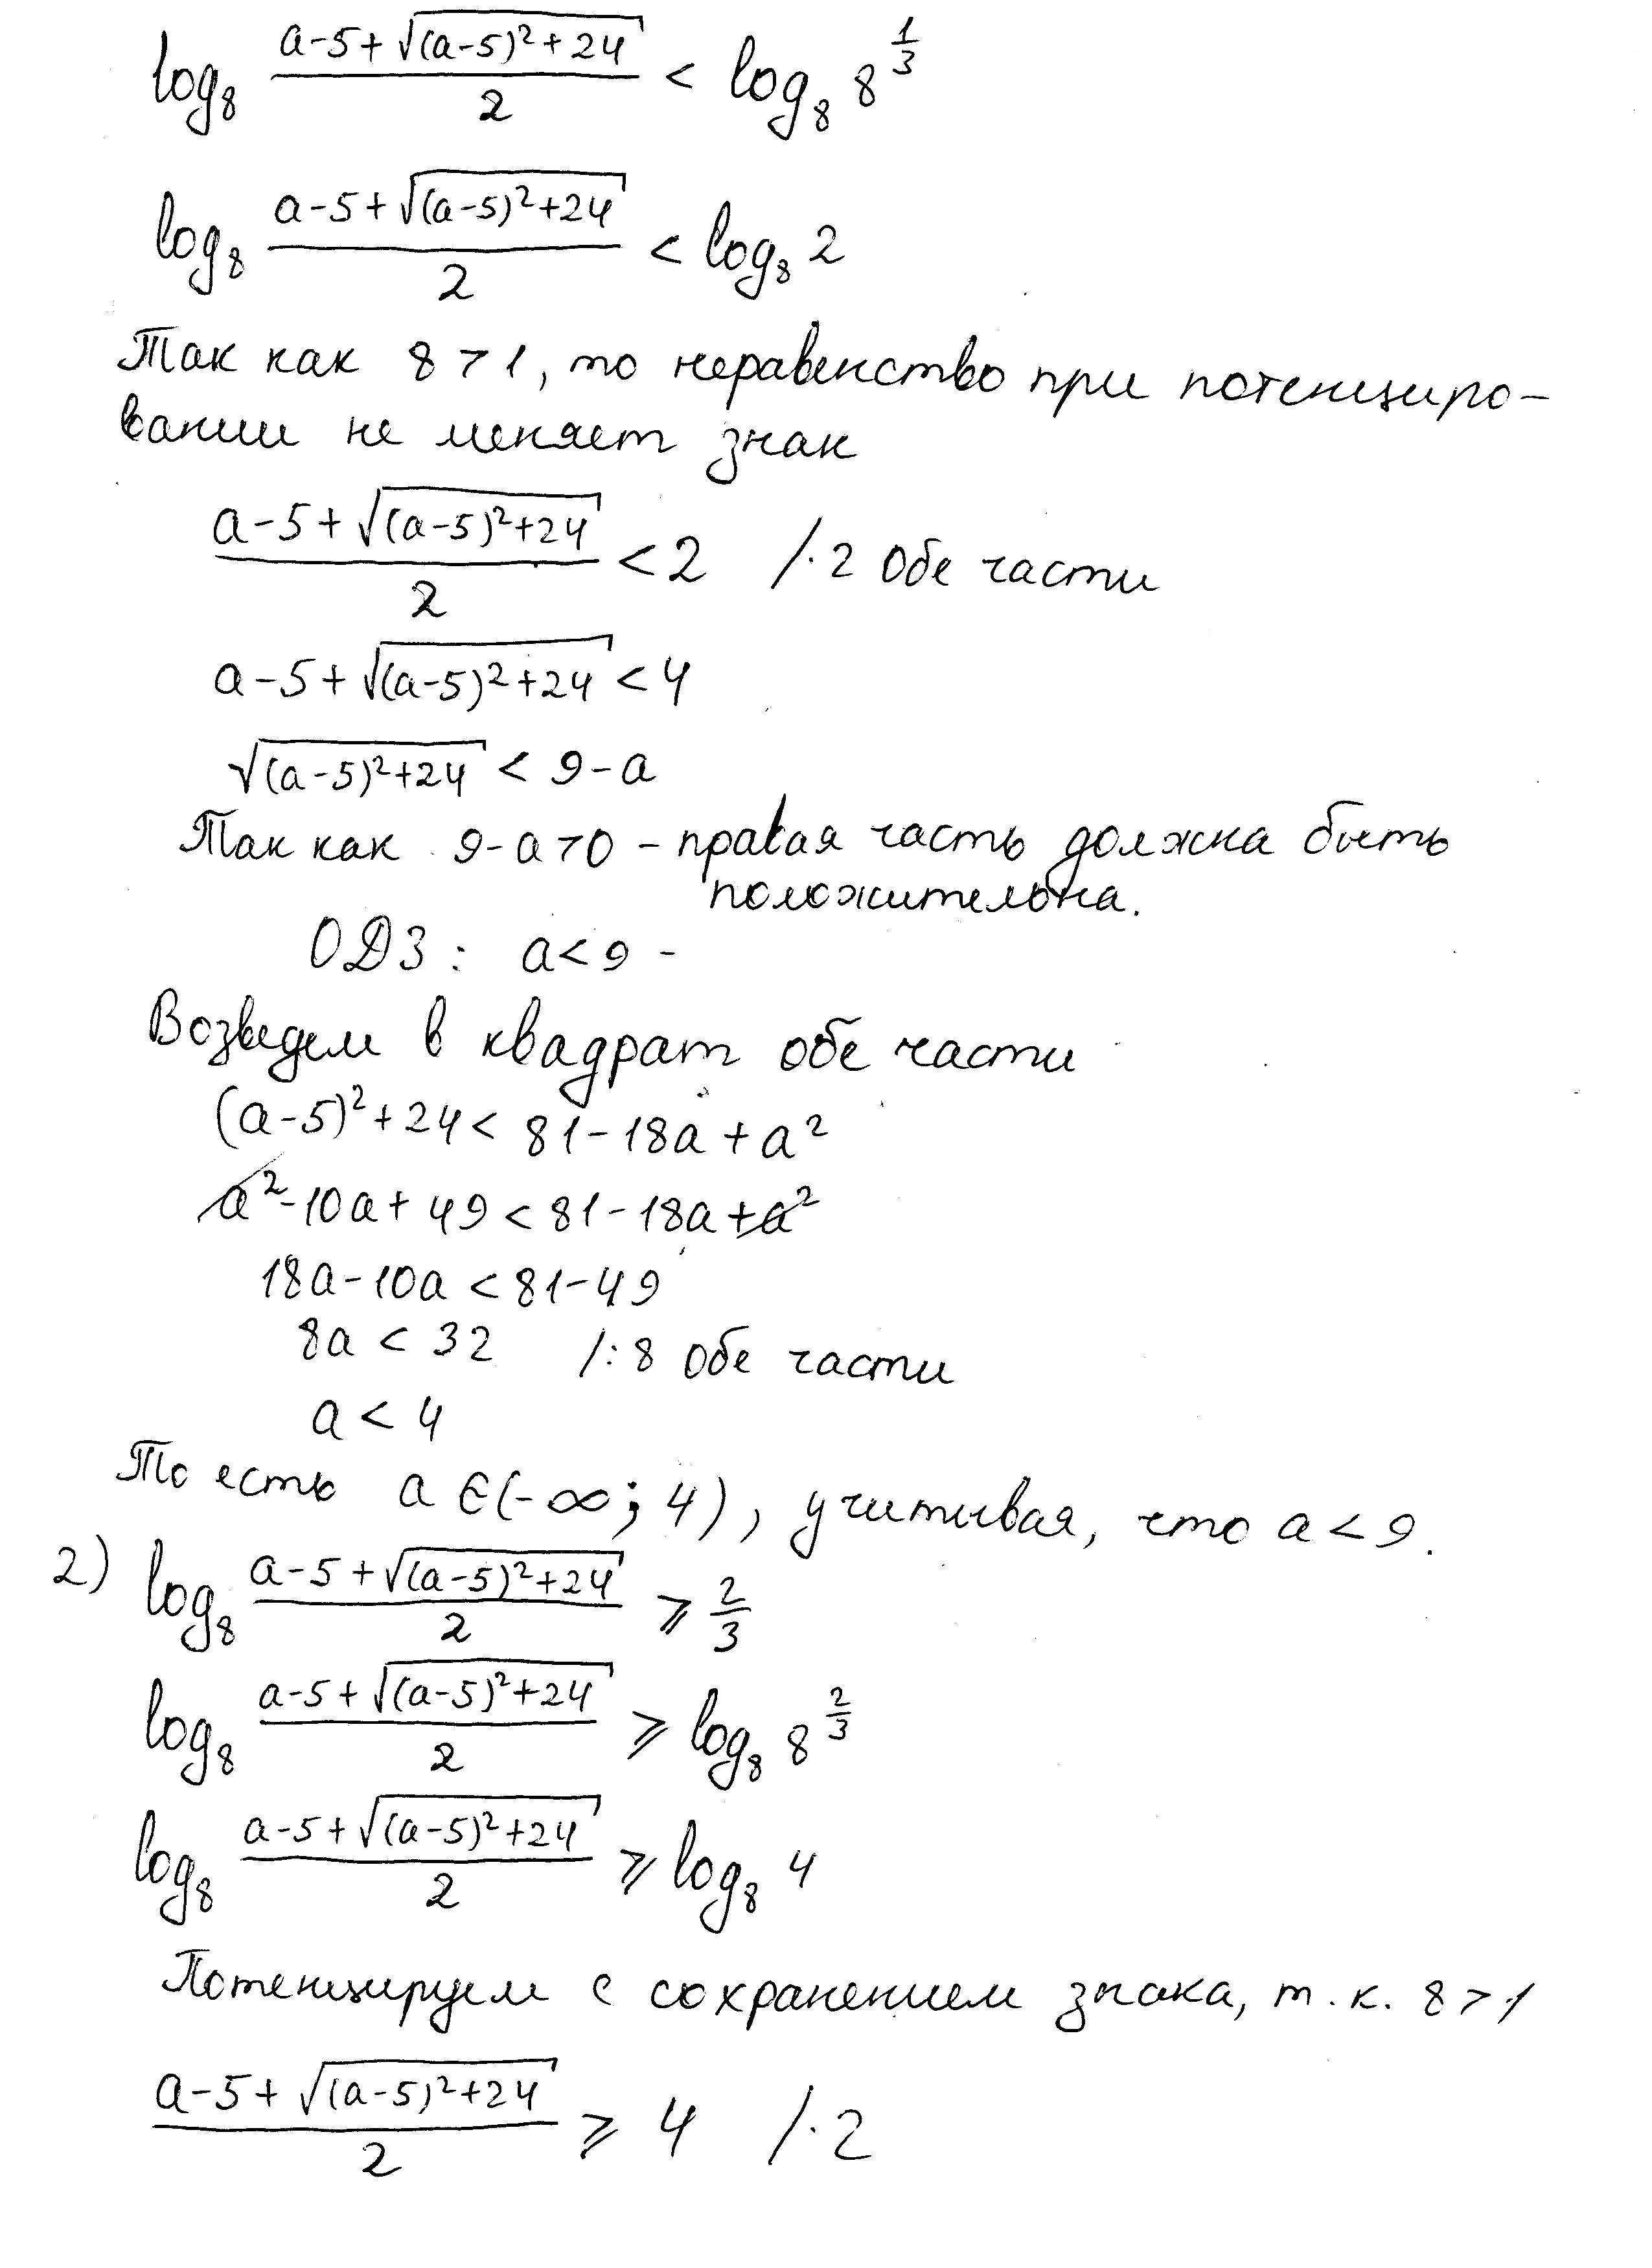 log₈ (a-5+√((a-5)²+24))/2 < log₈ 8^(1/3)
log₈ (a-5+√((a-5)²+24))/2 < log₈ 2
Так как 8>1, то неравенство при потенциро-
вании не меняет знак
(a-5+√((a-5)²+24))/2 < 2 /·2 Обе части
a-5+√((a-5)²+24) < 4
√((a-5)²+24) < 9-a
Так как 9-a>0 - правая часть должна быть
положительна.
ОДЗ: a<9 -
Возведем в квадрат обе части
(a-5)²+24 < 81-18a+a²
a²-10a+49 < 81-18a+a²
18a-10a < 81-49
8a < 32 /:8 Обе части
a < 4
То есть a ∈(-∞; 4), учитывая, что a<9.
2) log₈ (a-5+√((a-5)²+24))/2 ⩾ 2/3
log₈ (a-5+√((a-5)²+24))/2 ⩾ log₈ 8^(2/3)
log₈ (a-5+√((a-5)²+24))/2 ⩾ log₈ 4
Потенцируем с сохранением знака, т.к. 8>1
(a-5+√((a-5)²+24))/2 ⩾ 4 /·2